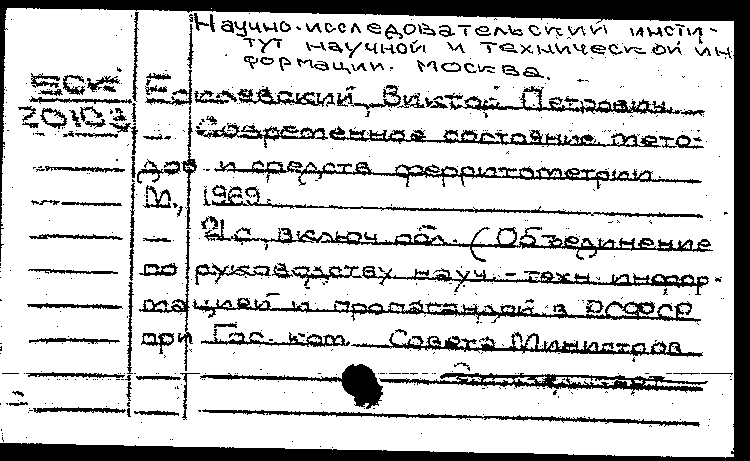 Научно-исследовательский инсти-
тут научной и технической ин
формации. Москва.
Виктор Петрович.
20103
— Современное состояние мето-
дов и средств ферритометрии.
М., 1969.
— 21 с., включ. обл. (Объединение
по руководству науч.-техн. инфор-
мацией и пропагандой в РСФСР
при Гос. ком. Совета Министров